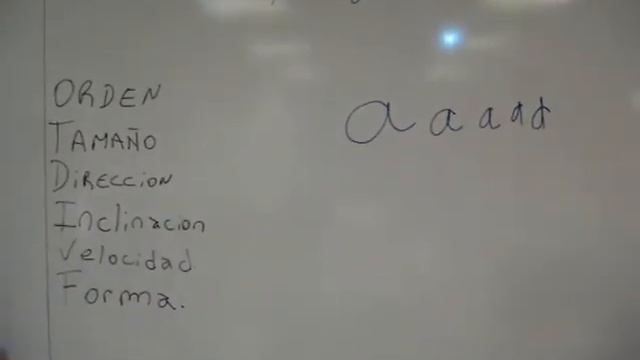 ORDEN
TAMAÑO
DiRECCioN
Inclinacion
Velocidad
Forma.
a a a a d